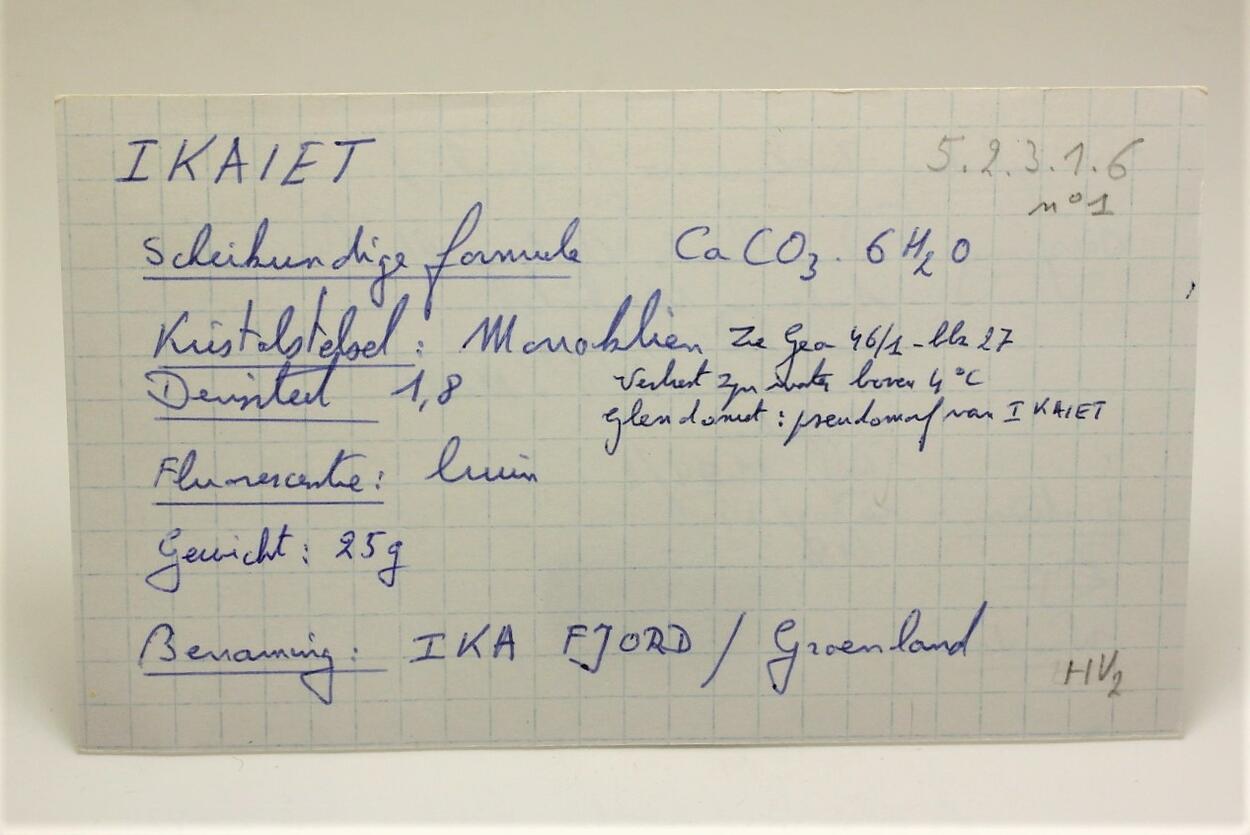 IKAIET
5.2.3.1.6
n°1
Scheikundige formule CaCO₃. 6H₂O
Kristalstelsel: Monoklien Zie Gea 46/1 - blz 27
Densiteit 1,8
Verliest zijn water boven 4°C
Glendoniet: pseudomorf van IKAIET
Fluorescentie: bruin
Gewicht: 25g
Benaming: IKA FJORD / Groenland
HV₂